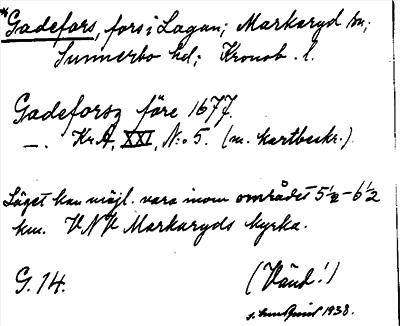 *Gadefors, fors i Lagan; Markaryd sn;
Sunnerbo hd; Kronob. l.
Gadeforsz före 1677.
—. Kr.A, XXI, N:o 5. (m. kartbeskr.)
Läget kan möjl. vara inom området 5½–6½
km. VNV Markaryds kyrka.
G. 14. (Vänd!)
S. 1938.